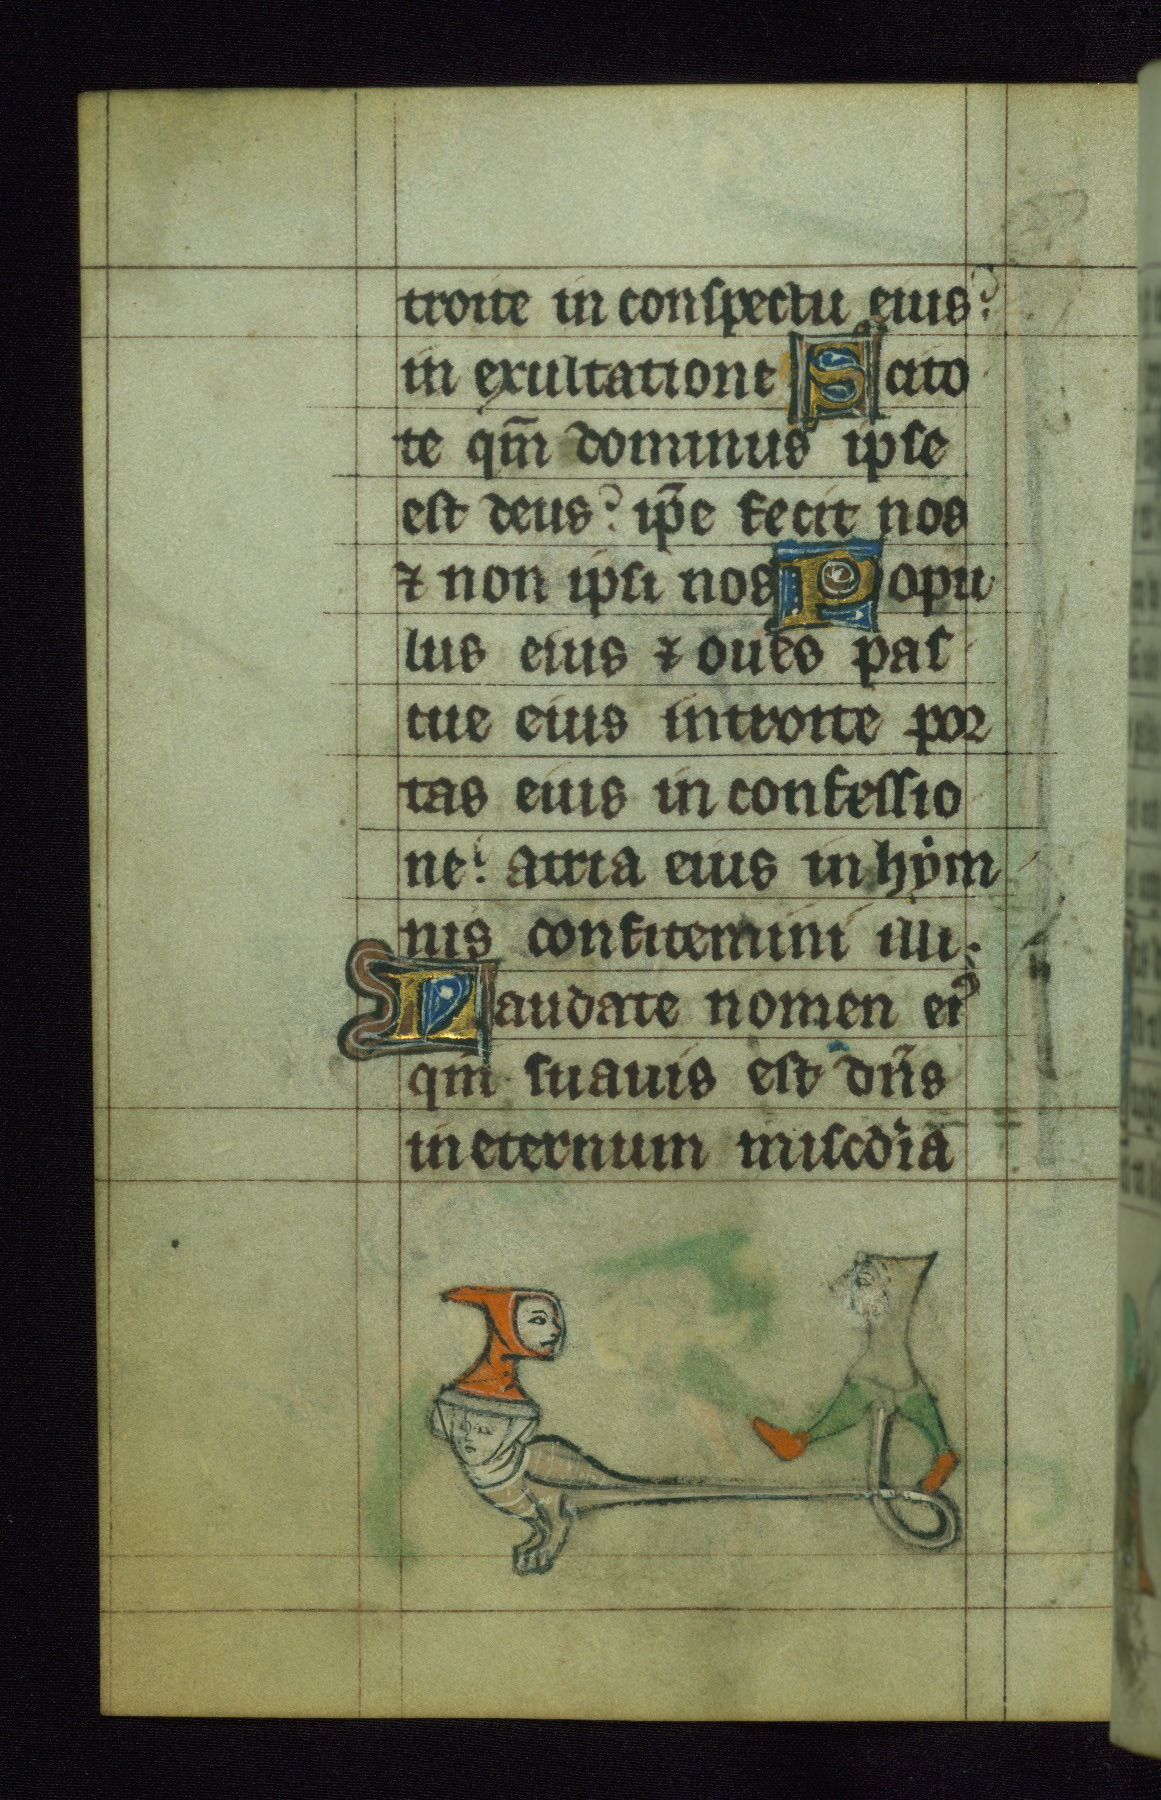 troite in conspectu eius?
in exultatione Scito
te qm̄ dominus ipse
est deus? ip̄e fecit nos
⁊ non ipsi nos Popu
lus eius ⁊ oues pas
cue eius introite por
tas eius in confessio
ne? atria eius in hẏm
nis confitemini illi.
Laudate nomen ei⁹
qm̄ suauis est dn̄s
in eternum misc̄dia